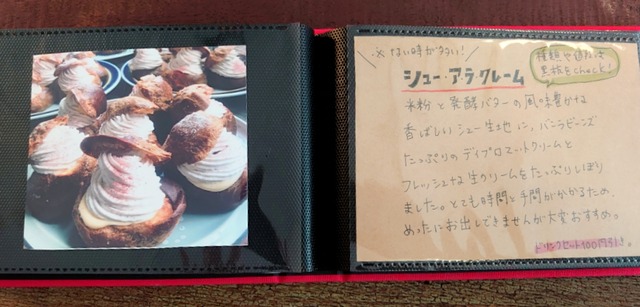 ※ ない時が多い!
シュー・ア・ラ・クレーム
種類や値段は
黒板をcheck!
米粉と発酵バターの風味豊かな
香ばしいシュー生地に、バニラビーンズ
たっぷりのディプロマットクリームと
フレッシュな生クリームをたっぷりしぼり
ました。とても時間と手間がかかるため、
めったにお出しできませんが大変おすすめ。
ドリンクセット100円引き。